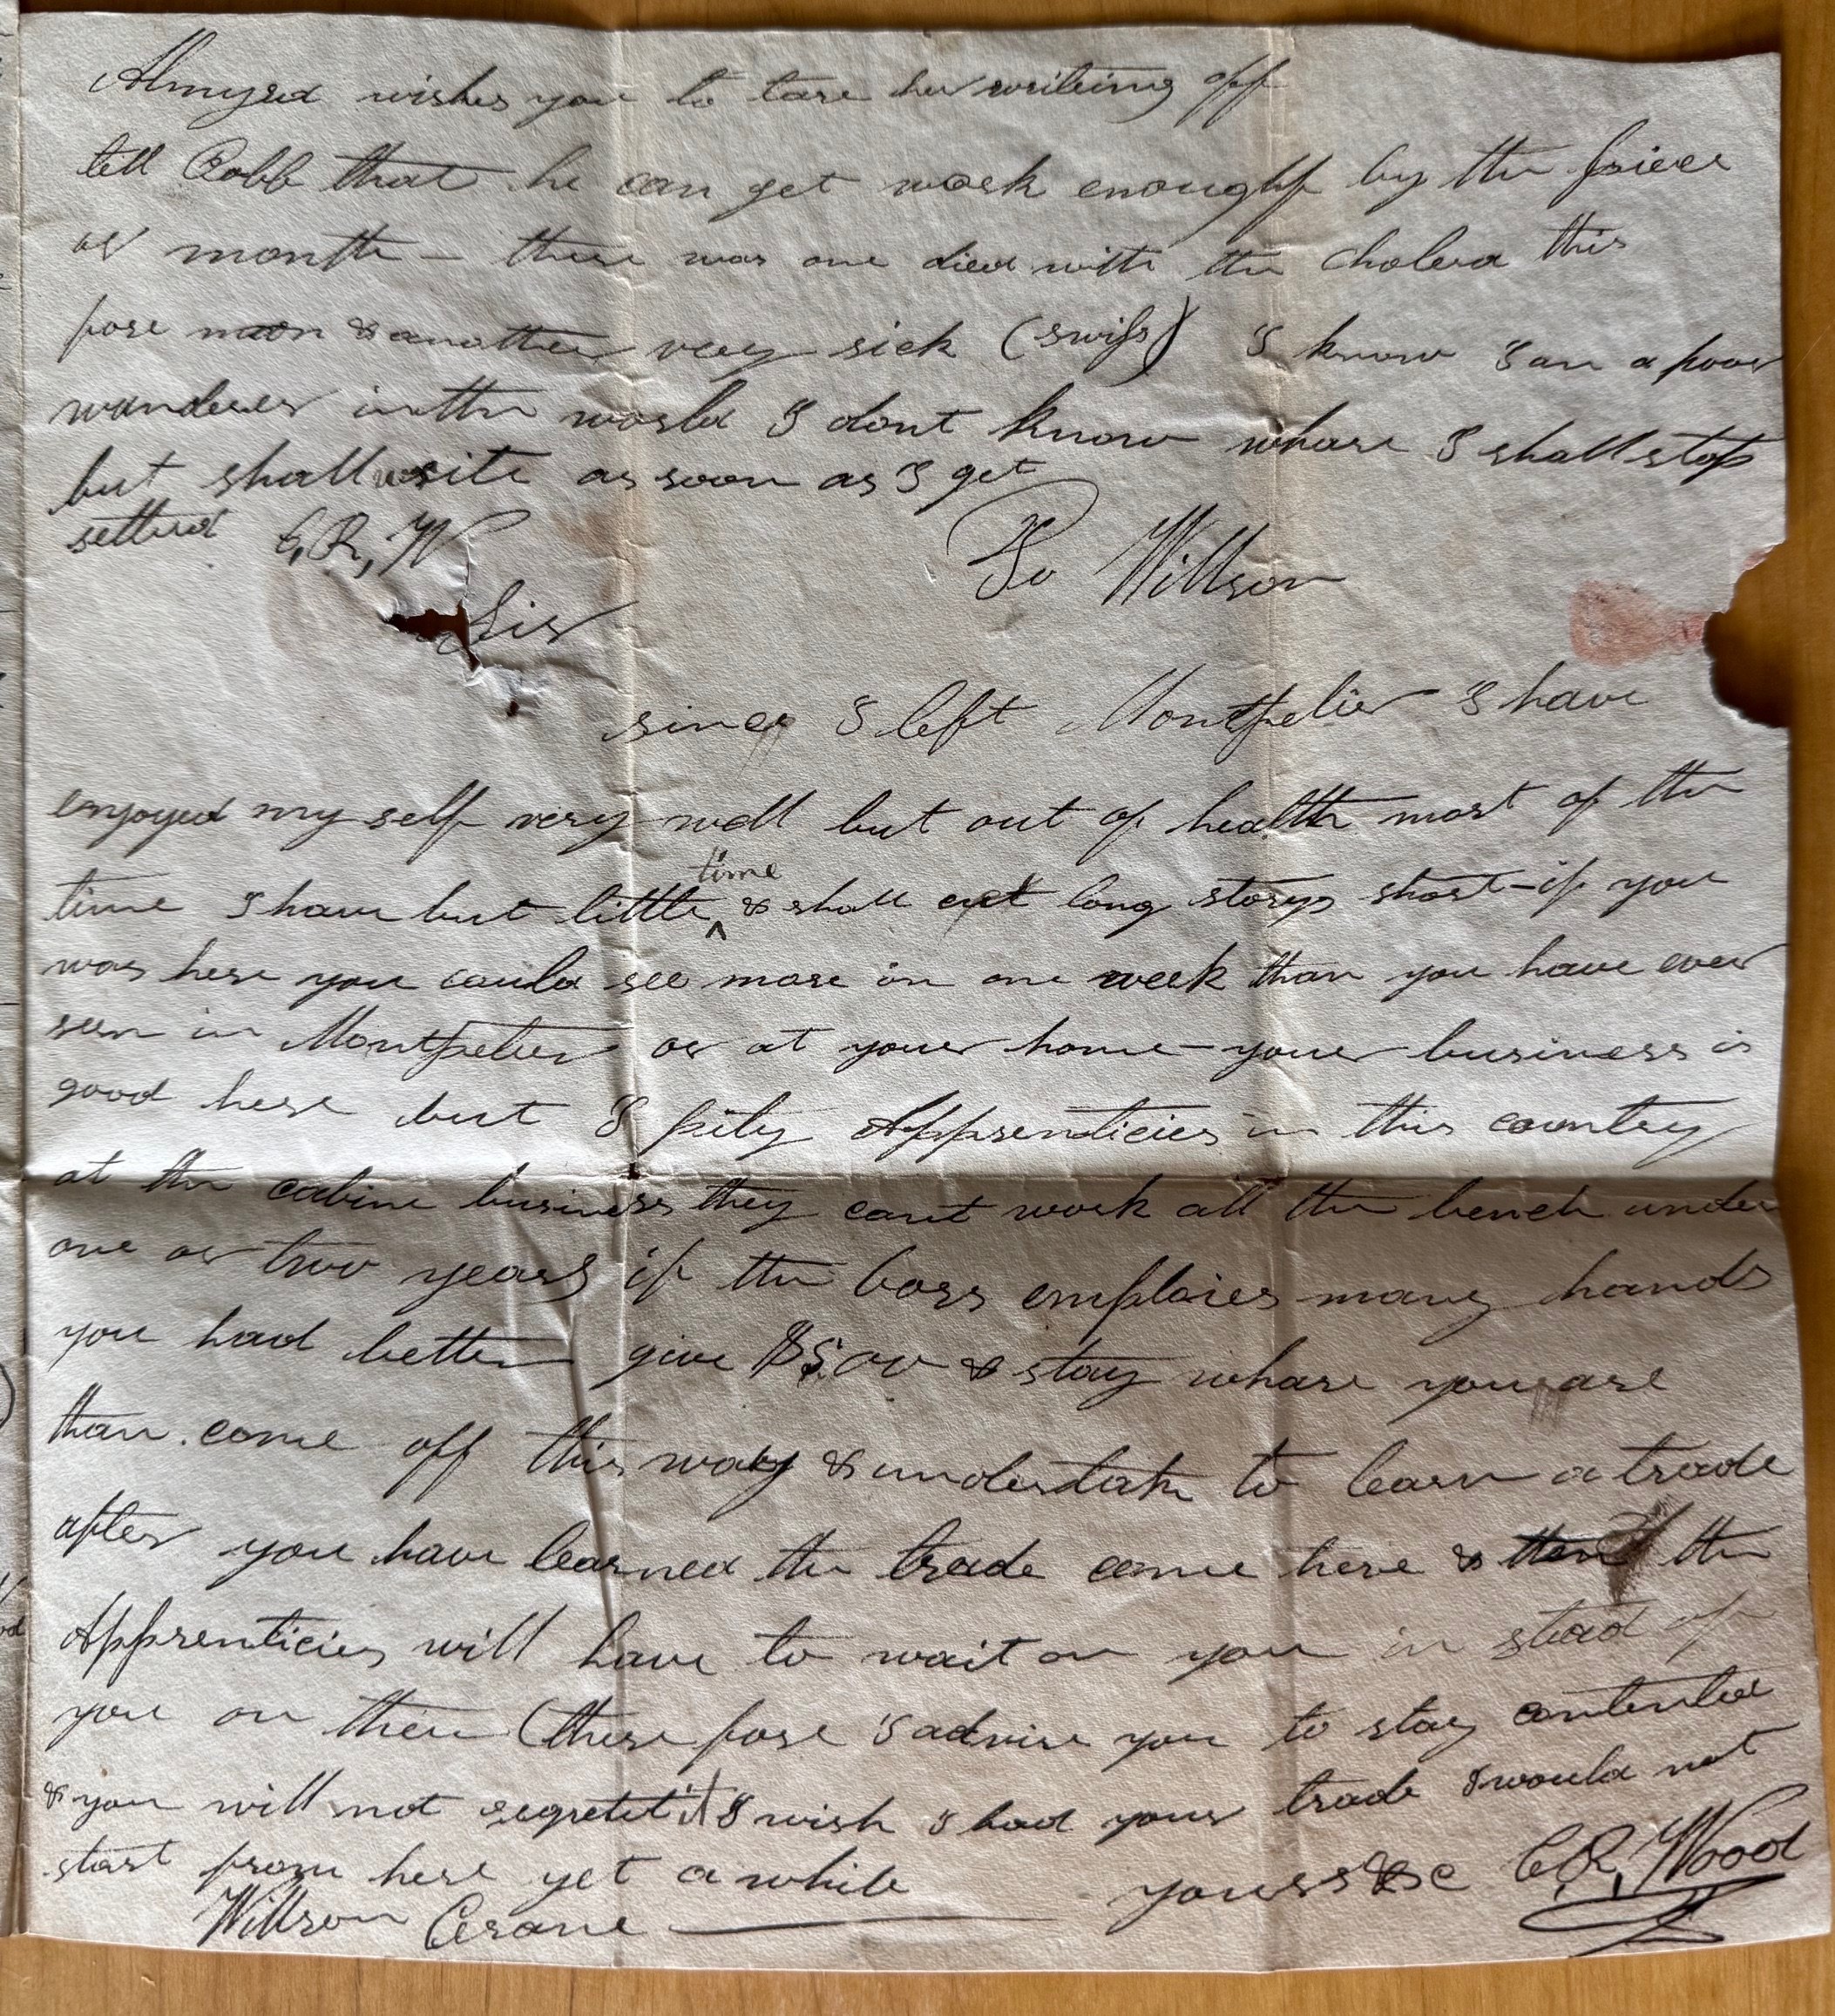 Almyra wishes you to tare her writeing off
tell Robb that he can get work enough by the piece
or month – there was one died with the cholera this
fore noon & another very sick (swifs) I know I am a poor
wanderer in the world I dont know whare I shall stop
but shall write as soon as I get
settled C, R, W
To Willson
Sir
since I left Montpelier I have
enjoyed my self very well but out of health most of the
time I have but little time & shall cut long storys short – if you
was here you could see more in one week than you have ever
seen in Montpelier or at your home – your business is
good here but I pity Apprenticies in this country
at the cabine business they cant work at the bench under
one or two years if the boss emploies many hands
you had better give $500 & stay whare you are
than come off this way & undertake to learn a trade
after you have learned the trade come here & then the
Apprenticies will have to wait on you in stead of
you on them (there fore I advise you to stay contented
& you will not regret it I wish I had your trade I would not
start from here yet a while yours &c C.R. Wood
Willson Crane